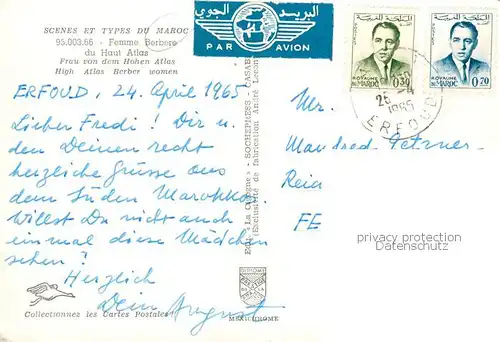 SCENES ET TYPES DU MAROC
95.003.66 - Femme Berbere
du Haut Atlas
Frau von dem Hohen Atlas
High Atlas Berber women
البريد الجوي
PAR AVION
ROYAUME DU MAROC 0,30
ROYAUME DU MAROC 0,20
1965
ERFOUD
ERFOUD, 24. April 1965
Lieber Fredi! Dir u.
den Deinen recht
herzliche Grüsse aus
dem Süden Marokko.
Willst Du nicht auch
einmal diese Mädchen
sehen?
Herzlich
Dein August
Mr.
FE
privacy protection
Datenschutz
Edit. "La Cigogne" - SOCHEPRESS - CASABL
(Exclusivité de fabrication André Leconte
DIPLOME
PRESTIGE
DE LA
FRANCE
MEXICHROME
Collectionnez les Cartes Postales